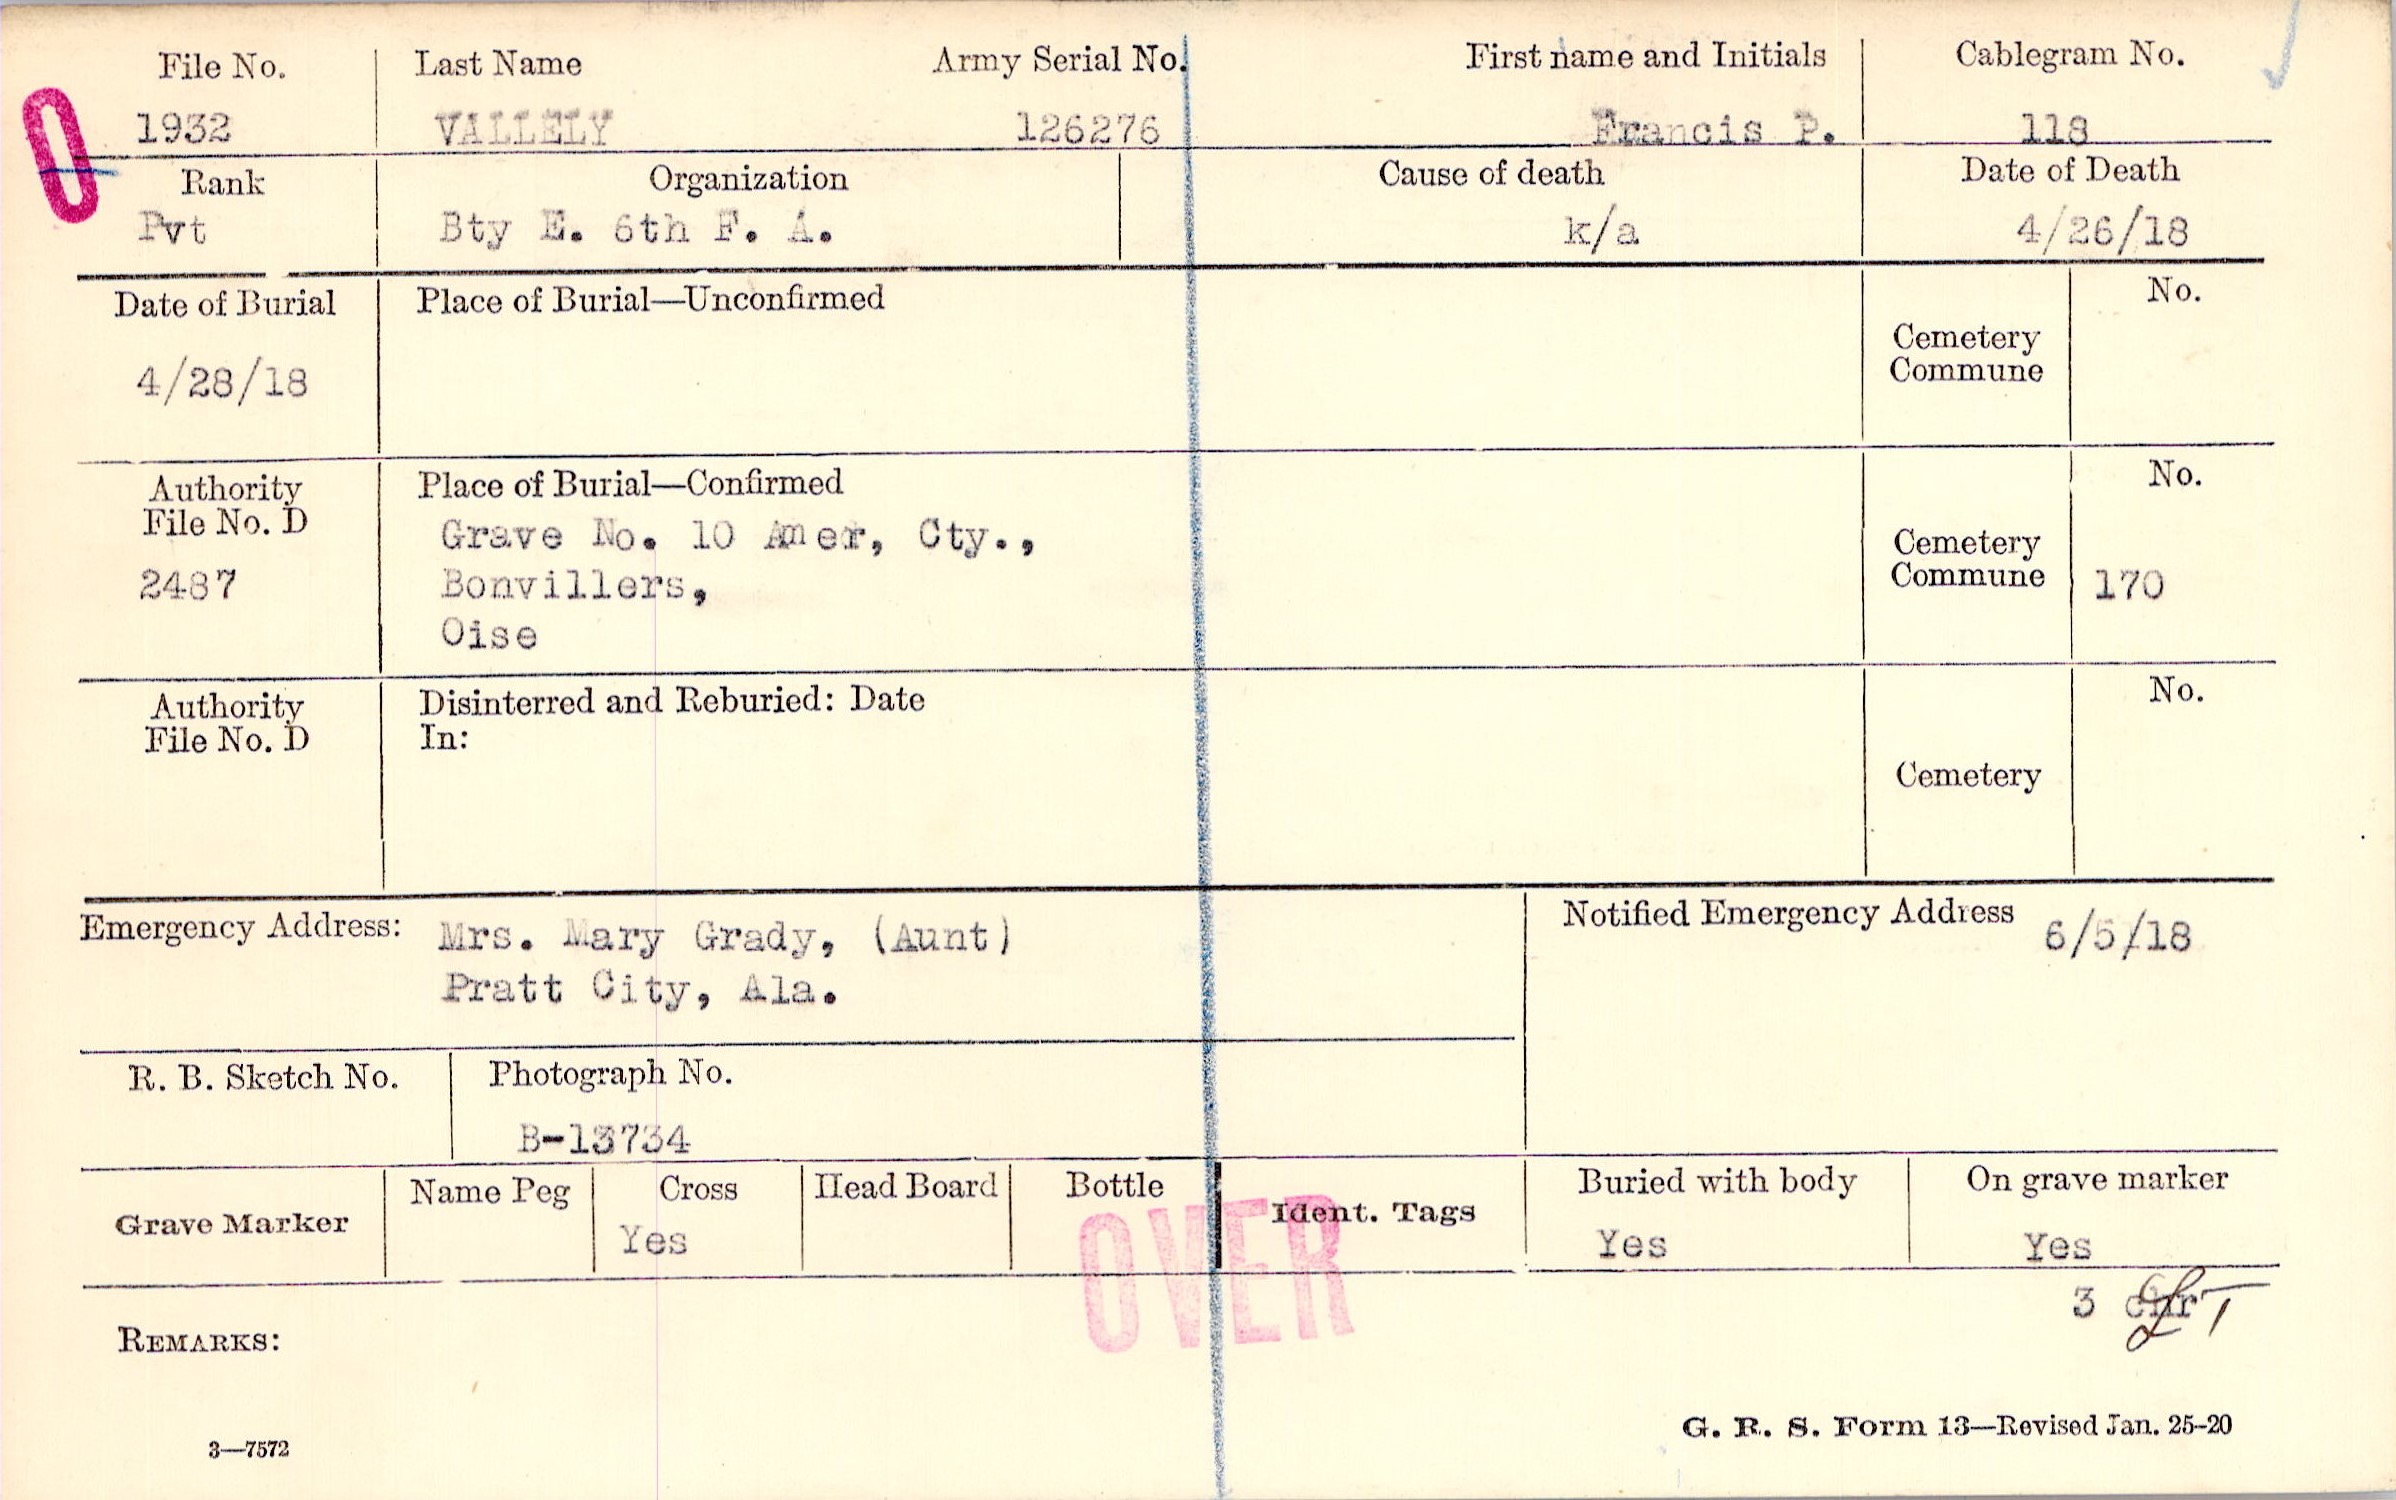 File No. Last Name Army Serial No. First name and Initials Cablegram No.
1932 VALLELY 126276 Francis P. 118
Rank Organization Cause of death Date of Death
Pvt Bty E. 6th F. A. k/a 4/26/18
Date of Burial Place of Burial—Unconfirmed No.
Cemetery
Commune
4/28/18
Authority Place of Burial—Confirmed No.
File No. D Grave No. 10 Amer, Cty., Cemetery
2487 Bonvillers, Commune 170
Oise
Authority Disinterred and Reburied: Date No.
File No. D In:
Cemetery
Emergency Address: Mrs. Mary Grady, (Aunt) Notified Emergency Address 6/5/18
Pratt City, Ala.
R. B. Sketch No. Photograph No.
B-13734
Name Peg Cross Head Board Bottle Buried with body On grave marker
Grave Marker Yes Ident. Tags Yes Yes
OVER
3
REMARKS:
G. R. S. Form 13—Revised Jan. 25-20
3—7572